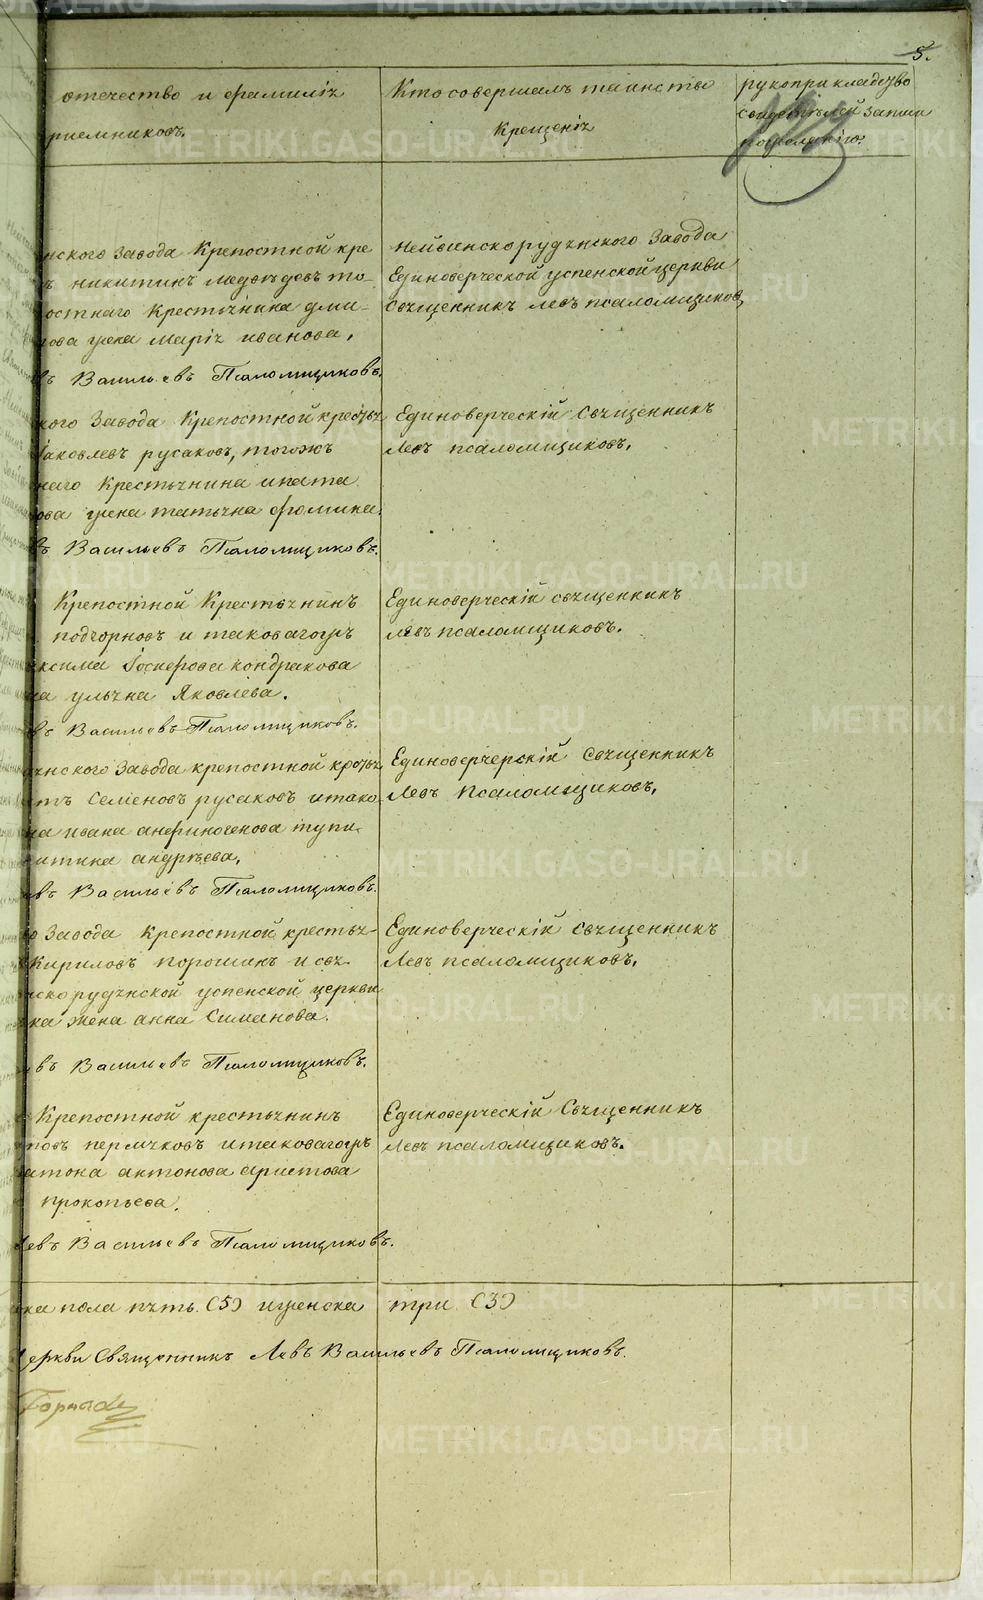 5.
отечество и фамилія
Кто совершалъ таинство
рукоприкладство
риемниковъ.
Крещенія
свидѣтелей записи
нскаго завода Крепостной кре
ъ никитинъ медвѣдевъ то-
остнаго Крестьянина дми-
ова жена Марія иванова,
въ Васильевъ Псаломщиковъ.
Нейвинскорудянского завода
Единоверческой успенской церкви
Священникъ левъ псаломщиковъ,
кого завода Крепостной крестья
Яковлевъ русаковъ, тогожъ
наго Крестьянина ипата
ова жена татьяна фомина.
въ Васильевъ Псаломщиковъ.
Единоверческій Священникъ
Левъ псаломщиковъ.
Крепостной Крестьянинъ
подгорновъ и таковагожъ
ксима Іосифова кондракова
на ульяна Яковлева.
въ Васильевъ Псаломщиковъ.
Единоверческій священникъ
левъ псаломщиковъ.
янского завода крепостной крестья
Семеновъ русаковъ итако
на ивана анфиногенова тупи
андрѣева,
въ Васильевъ Псаломщиковъ.
Единоверческій Священникъ
Левъ Псаломщиковъ,
о завода крепостной крестья-
Кириловъ порошинъ и свя
нскорудянской успенской церкви
ка жена анна Симанова.
въ Васильевъ Псаломщиковъ.
Единоверческій Священникъ
Левъ псаломщиковъ,
Крепостной крестьянинъ
повъ пермяковъ итаковагожъ
атона антонова аристова
прокопьева.
Левъ Васильевъ Псаломщиковъ.
Единоверческій Священникъ
Левъ псаломщиковъ.
ка пола пять (5) иженска три (3)
церкви Священникъ Левъ Васильевъ Псаломщиковъ.
METRIKI.GASO-URAL.RU